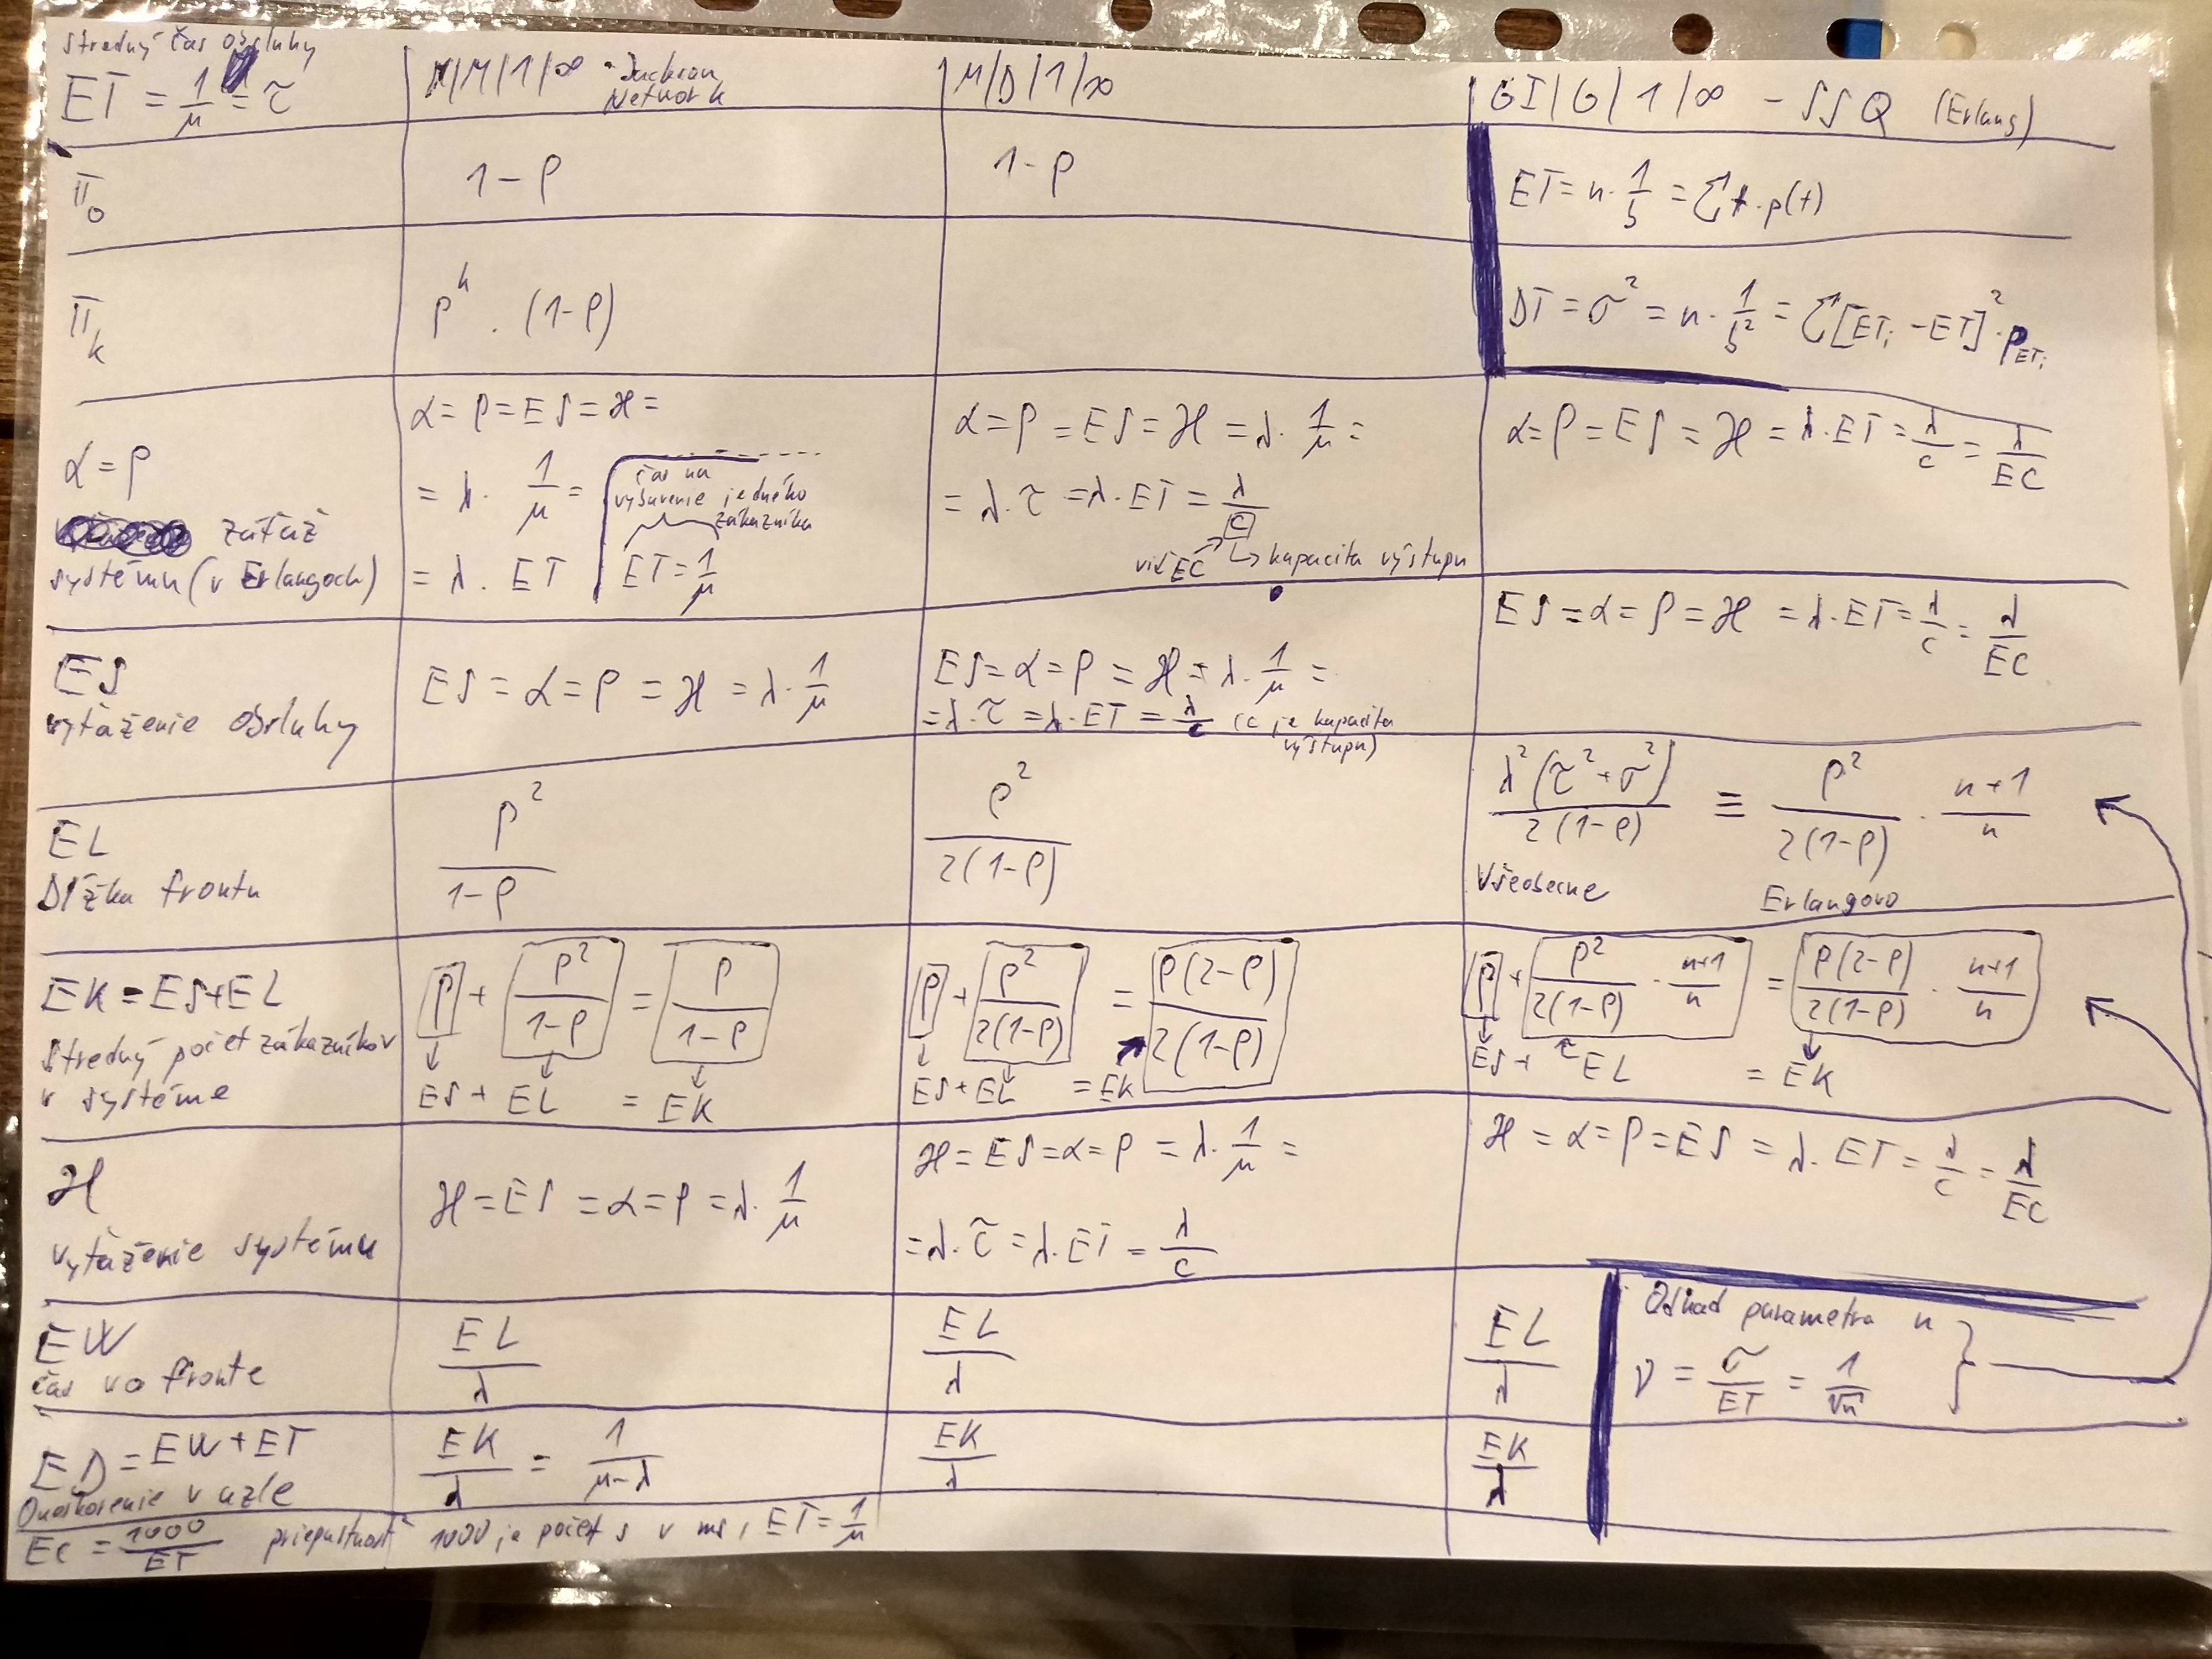 Stredný čas obsluhy
ET = 1/μ = τ
M/M/1/∞ - Jackson Network
M/D/1/∞
GI/G/1/∞ - SSQ (Erlang)
π₀
1-ρ
1-ρ
ET = n · 1/b = Σ t · p(t)
π_k
ρ^k · (1-ρ)
DT = σ² = n · 1/b² = Σ [ET_i - ET]² · p_ETi
α = ρ
záťaž
systému (v Erlangoch)
α = ρ = ES = ℋ =
= λ · 1/μ =
= λ · ET
čas na
vybavenie jedného
zákazníka
ET = 1/μ
α = ρ = ES = ℋ = λ · 1/μ =
= λ · τ = λ · ET = λ/c
viď EC ↳ kapacita výstupu
α = ρ = ES = ℋ = λ · ET = λ/c = λ/EC
ES
vyťaženie obsluhy
ES = α = ρ = ℋ = λ · 1/μ
ES = α = ρ = ℋ = λ · 1/μ =
= λ · τ = λ · ET = λ/c (c je kapacita
výstupu)
ES = α = ρ = ℋ = λ · ET = λ/c = λ/EC
EL
Dĺžka frontu
ρ²/(1-ρ)
ρ²/(2(1-ρ))
λ²(τ²+σ²)/(2(1-ρ)) ≡ ρ²/(2(1-ρ)) · (n+1)/n
Všeobecne
Erlangovo
EK = ES+EL
Stredný počet zákazníkov
v systéme
ρ + ρ²/(1-ρ) = ρ/(1-ρ)
ES + EL = EK
ρ + ρ²/(2(1-ρ)) = ρ(2-ρ)/(2(1-ρ))
ES + EL = EK
ρ + ρ²/(2(1-ρ)) · (n+1)/n = ρ(2-ρ)/(2(1-ρ)) · (n+1)/n
ES + EL = EK
ℋ
vyťaženie systému
ℋ = ES = α = ρ = λ · 1/μ
ℋ = ES = α = ρ = λ · 1/μ =
= λ · τ = λ · ET = λ/c
ℋ = α = ρ = ES = λ · ET = λ/c = λ/EC
EW
čas vo fronte
EL/λ
EL/λ
EL/λ
Odhad parametra n
ν = σ/ET = 1/√n
ED = EW + ET
Oneskorenie v uzle
EK/λ = 1/(μ-λ)
EK/λ
EK/λ
EC = 1000/ET priepustnosť 1000 je počet s v ms, ET = 1/μ